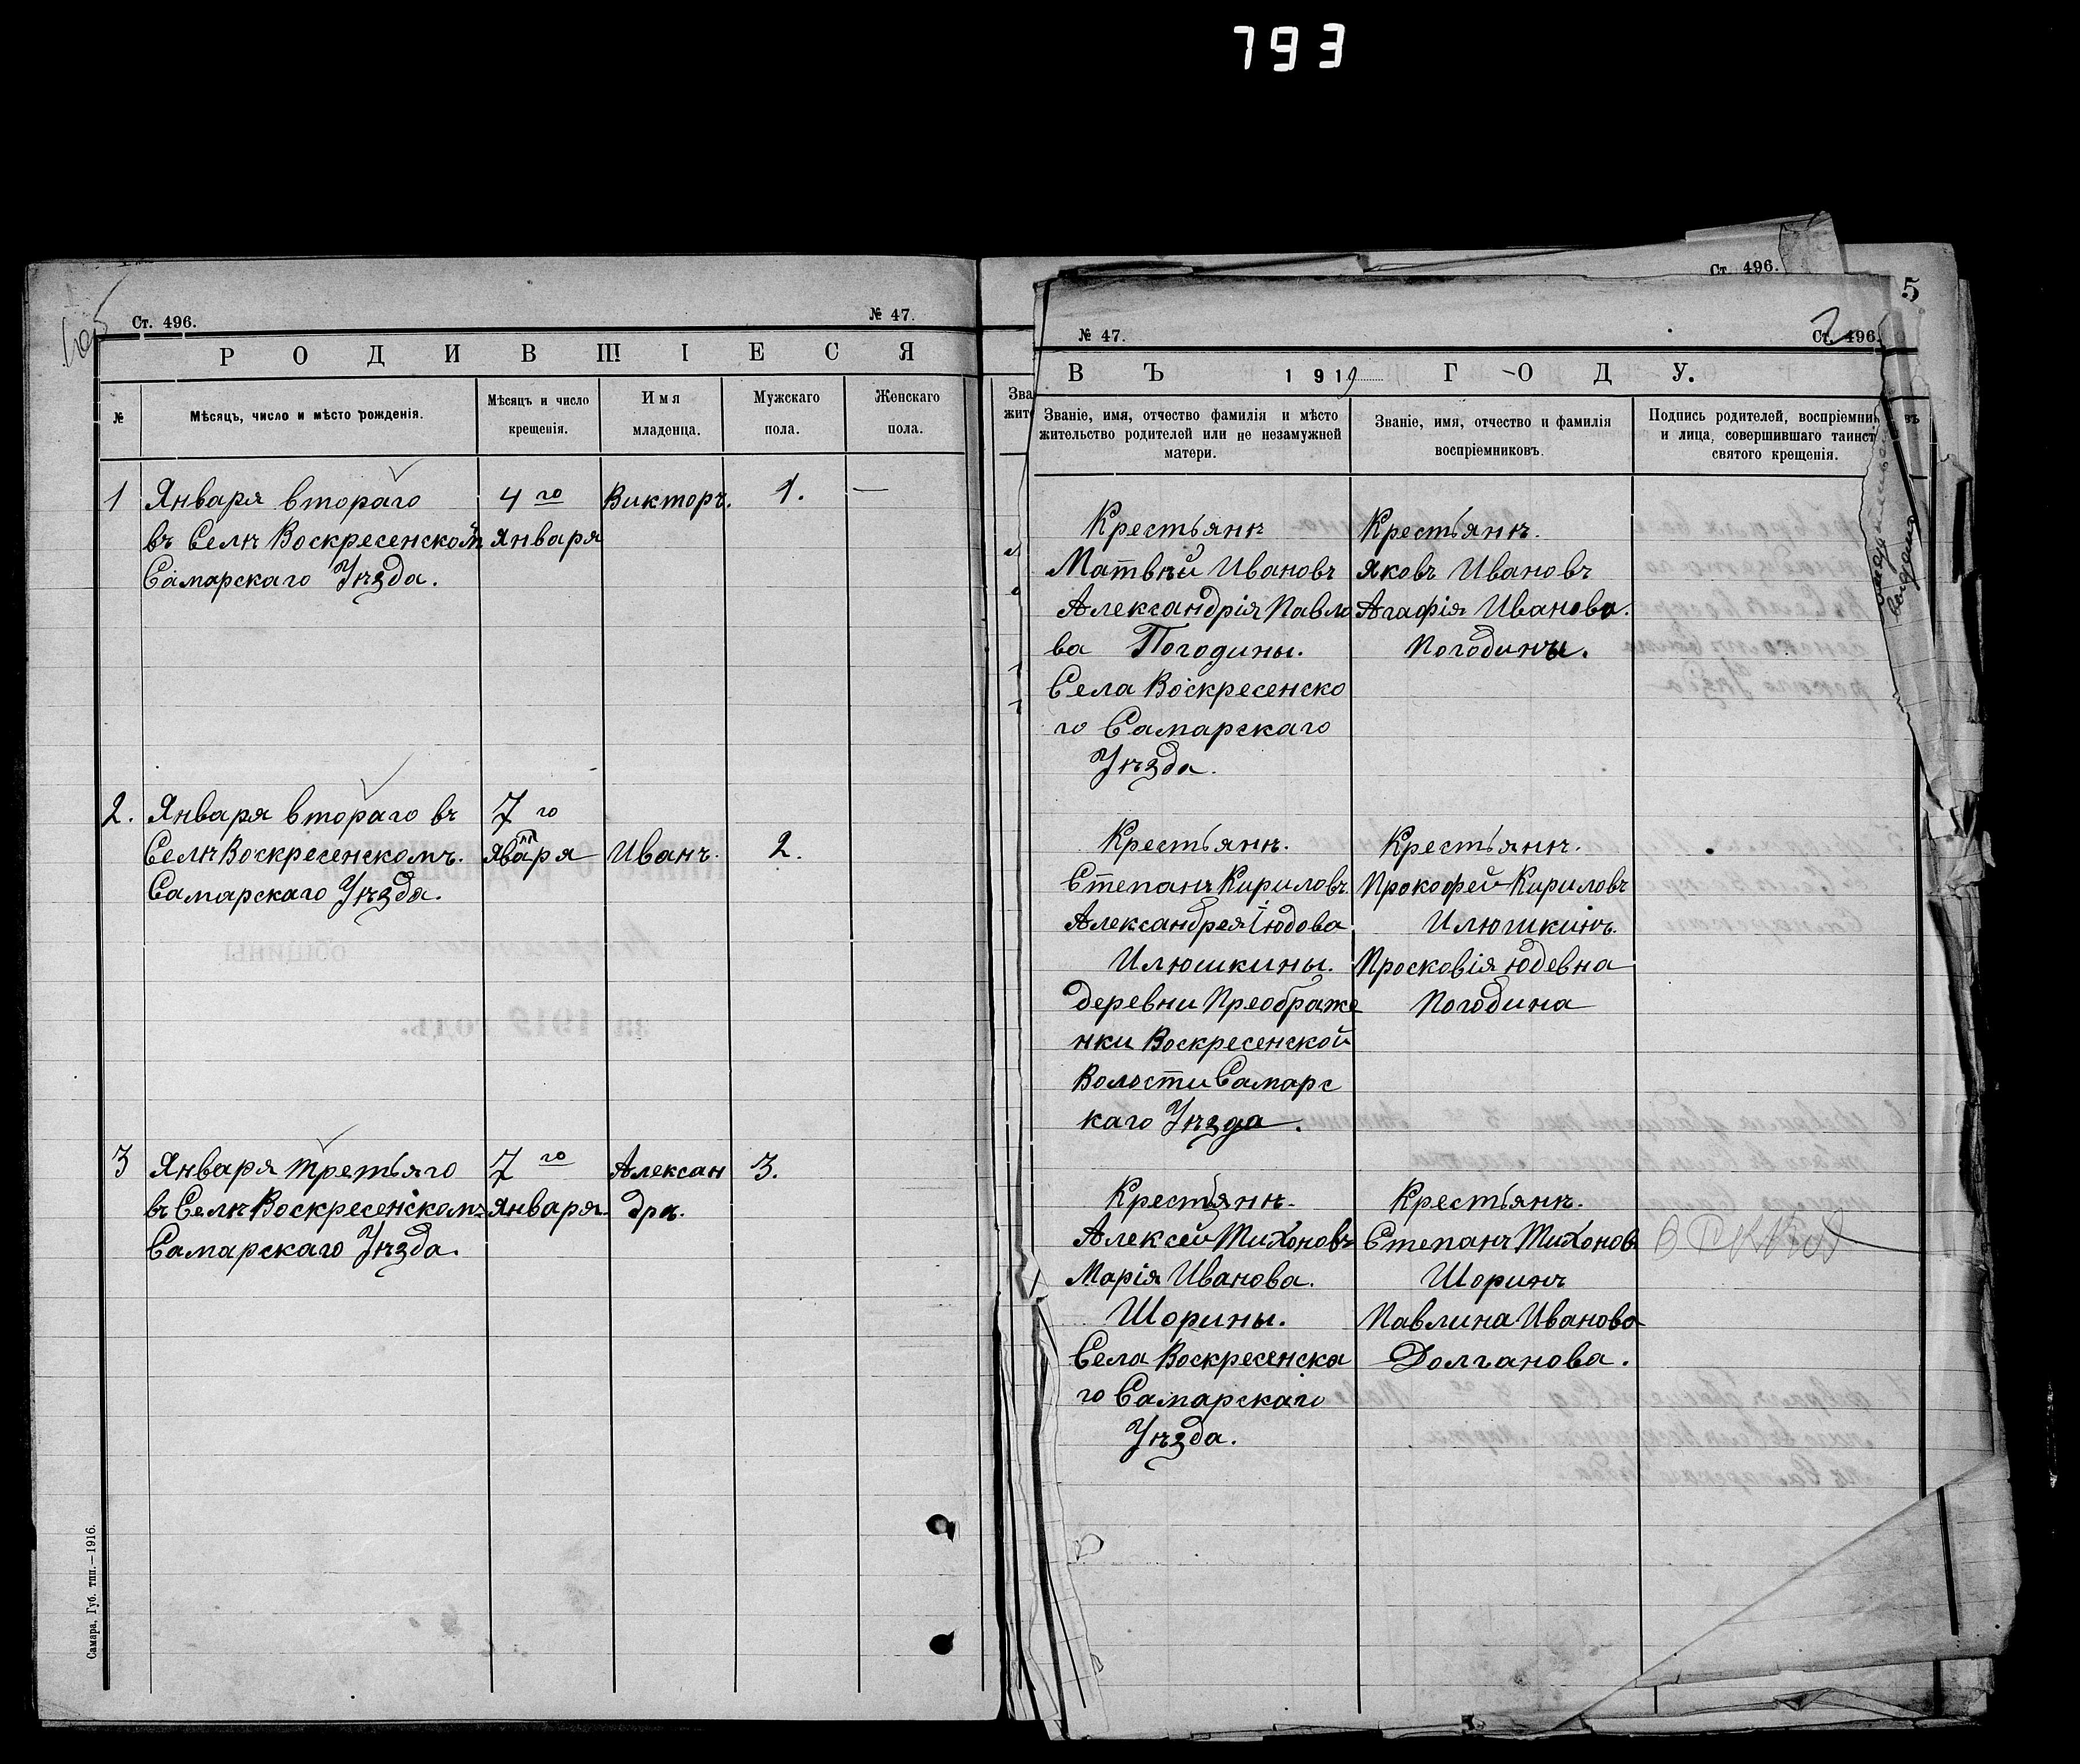 793
Ст. 496.
№ 47.
РОДИВШІЕСЯ
№
Мѣсяцъ, число и мѣсто рожденія.
Мѣсяцъ и число
крещенія.
Имя
младенца.
Мужскаго
пола.
Женскаго
пола.
1 Января втораго 4 го Викторъ. 1. —
въ Селѣ Воскресенскомъ Января
Самарскаго Уѣзда.
2. Января втораго въ 7 го
Селѣ Воскресенскомъ. Января Иванъ. 2.
Самарскаго Уѣзда.
3 Января третьяго 7 го Алексан 3.
въ Селѣ Воскресенскомъ Января. дръ.
Самарскаго Уѣзда.
Самара, Губ. тип.—1916.
Ст. 496.
5
№ 47.
2
Ст. 496.
ВЪ 1919 ГОДУ.
Зва
жите
Званіе, имя, отчество фамилія и мѣсто
жительство родителей или не незамужней
матери.
Званіе, имя, отчество и фамилія
воспріемниковъ.
Подпись родителей, воспріемниковъ
и лица, совершившаго таинст
святого крещенія.
Крестьянѣ Крестьянѣ.
Матвѣй Ивановъ Яковъ Ивановъ
Александрія Павло Агафія Иванова.
ва Погодины. Погодины.
Села Воскресенско
го Самарскаго
Уѣзда.
Крестьянѣ. Крестьянѣ.
Степанъ Кириловъ. Прокофей Кириловъ
Александрея Іюдова Илюшкинъ.
Илюшкины. Просковія Юдевна
деревни Преображе Погодина
нки Воскресенской
Волости Самарс
каго Уѣзда.
Крестьянѣ. Крестьянѣ.
Алексей Тихоновъ Степанъ Тихоновъ
Марія Иванова. Шоринъ
Шорины. Павлина Иванова
Села Воскресенска Долганова.
го Самарскаго
Уѣзда.